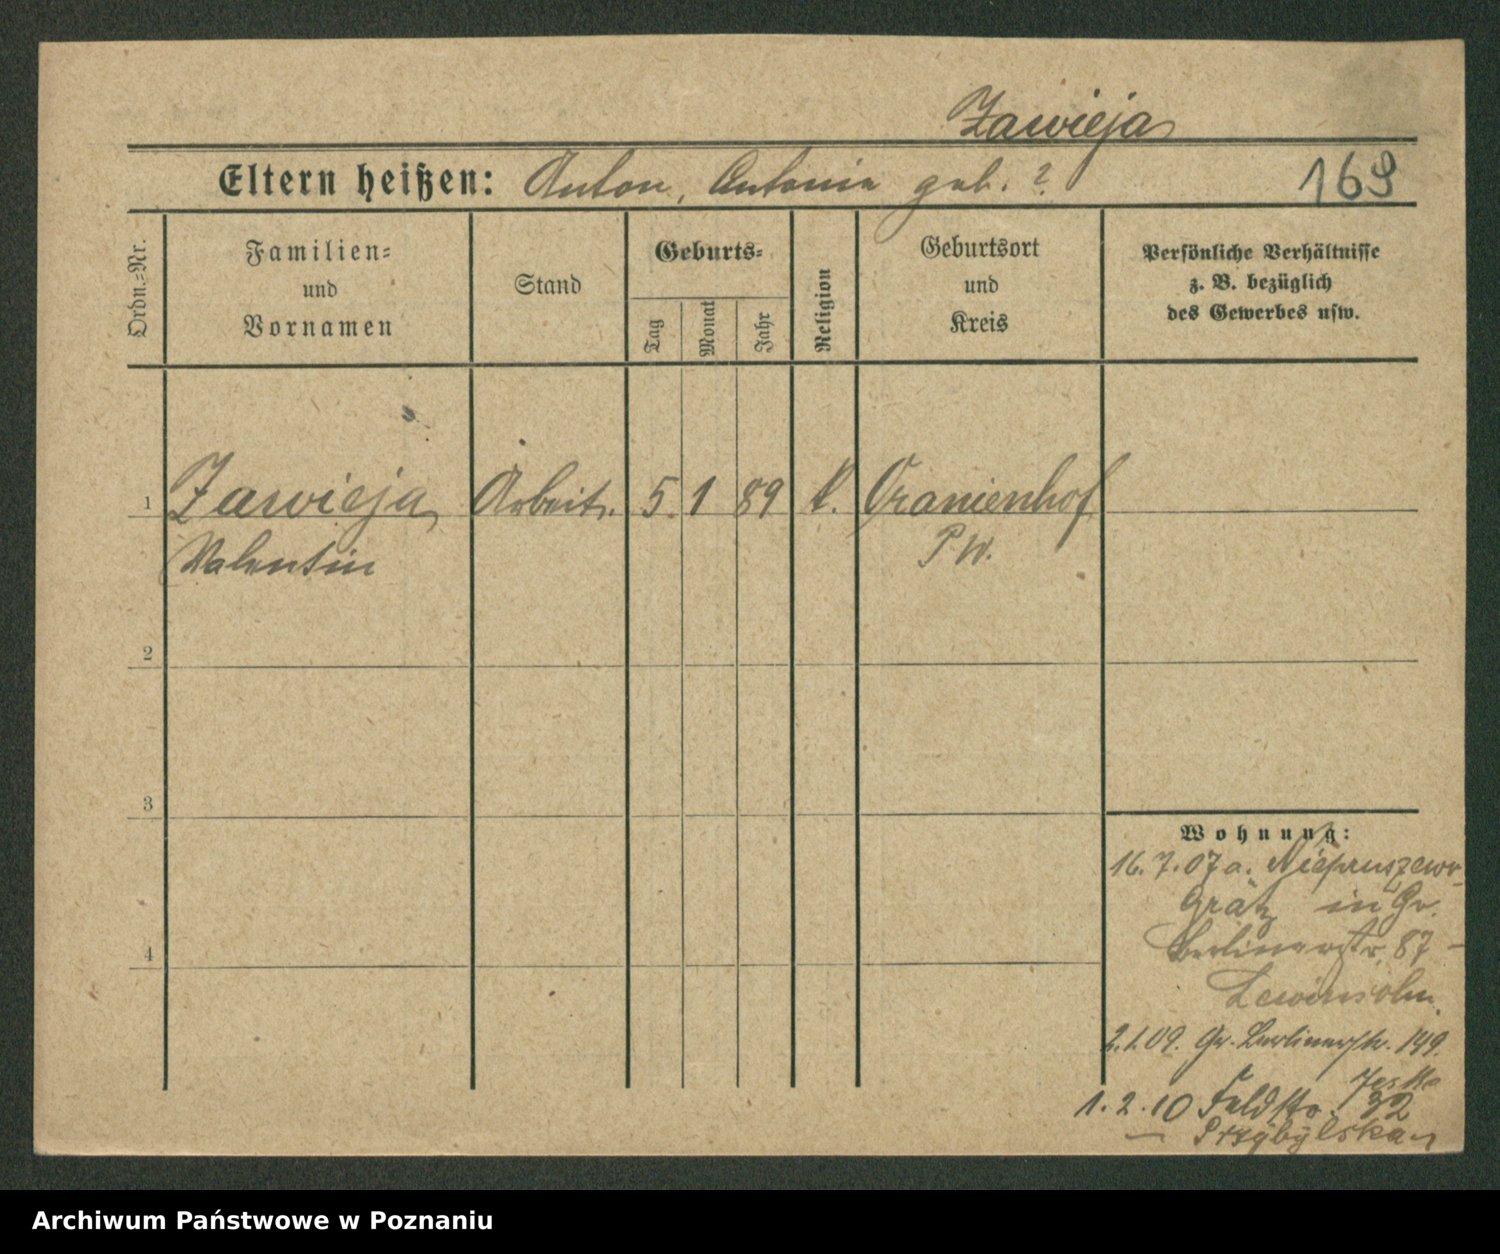 Zawieja
Eltern heißen: Anton, Antonie geb. ?
169
Ordn.-Nr.
Familien-
und
Vornamen
Stand
Geburts-
Tag
Monat
Jahr
Religion
Geburtsort
und
Kreis
Persönliche Verhältnisse
z. B. bezüglich
des Gewerbes usw.
1 Zawieja Arbeit. 5. 1 89 k. Oranienhof
Valentin P W.
2
3
4
Wohnung:
16.7.07 a. Niepruszewo
Grätz in Gr.
Berlinerstr. 87 -
Lewinsohn.
2.1.09. Gr. Berlinerstr. 149.
Jeske
1.2.10 Feldstr. 32
Przybylska
Archiwum Państwowe w Poznaniu